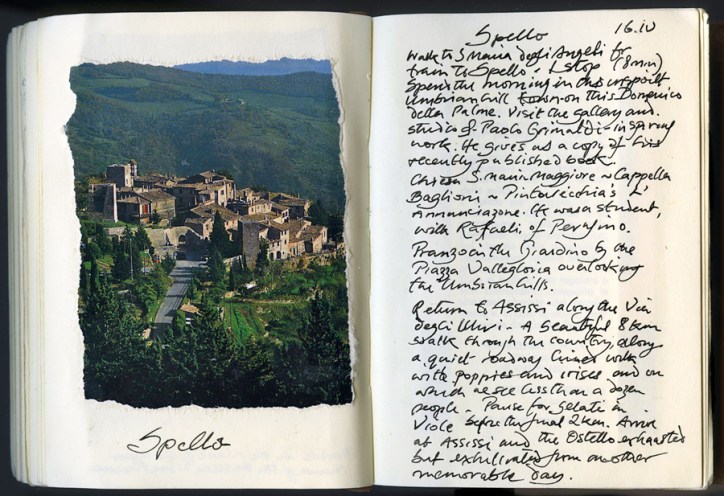 Spello
Spello
16.iv
Walk to S Maria degli Angeli for
train to Spello - 1 stop (8 min)
Spend the morning in this unspoilt
Umbrian hill town on this Domenica
delle Palme. Visit the gallery and
studio of Paolo Grimaldi - inspiring
work. He gives us a copy of his
recently published book.
Chiesa S. Maria Maggiore ~ Cappella
Baglioni ~ Pinturicchio's L'
Annunciazone. He was a student,
with Rafaeli, of Perugino.
Pranzo in the Giardino by the
Piazza Vallegloria overlooking
the Umbrian hills.
Return to Assissi along the Via
degli Ulivi - A beautiful 8 km
walk through the country, along
a quiet roadway lined with
with poppies and irises and on
which we see less than a dozen
people. Pause for gelati in
Viole before the final 2 km. Arrive
at Assissi and the Ostello exhausted
but exhilirated from another
memorable day.